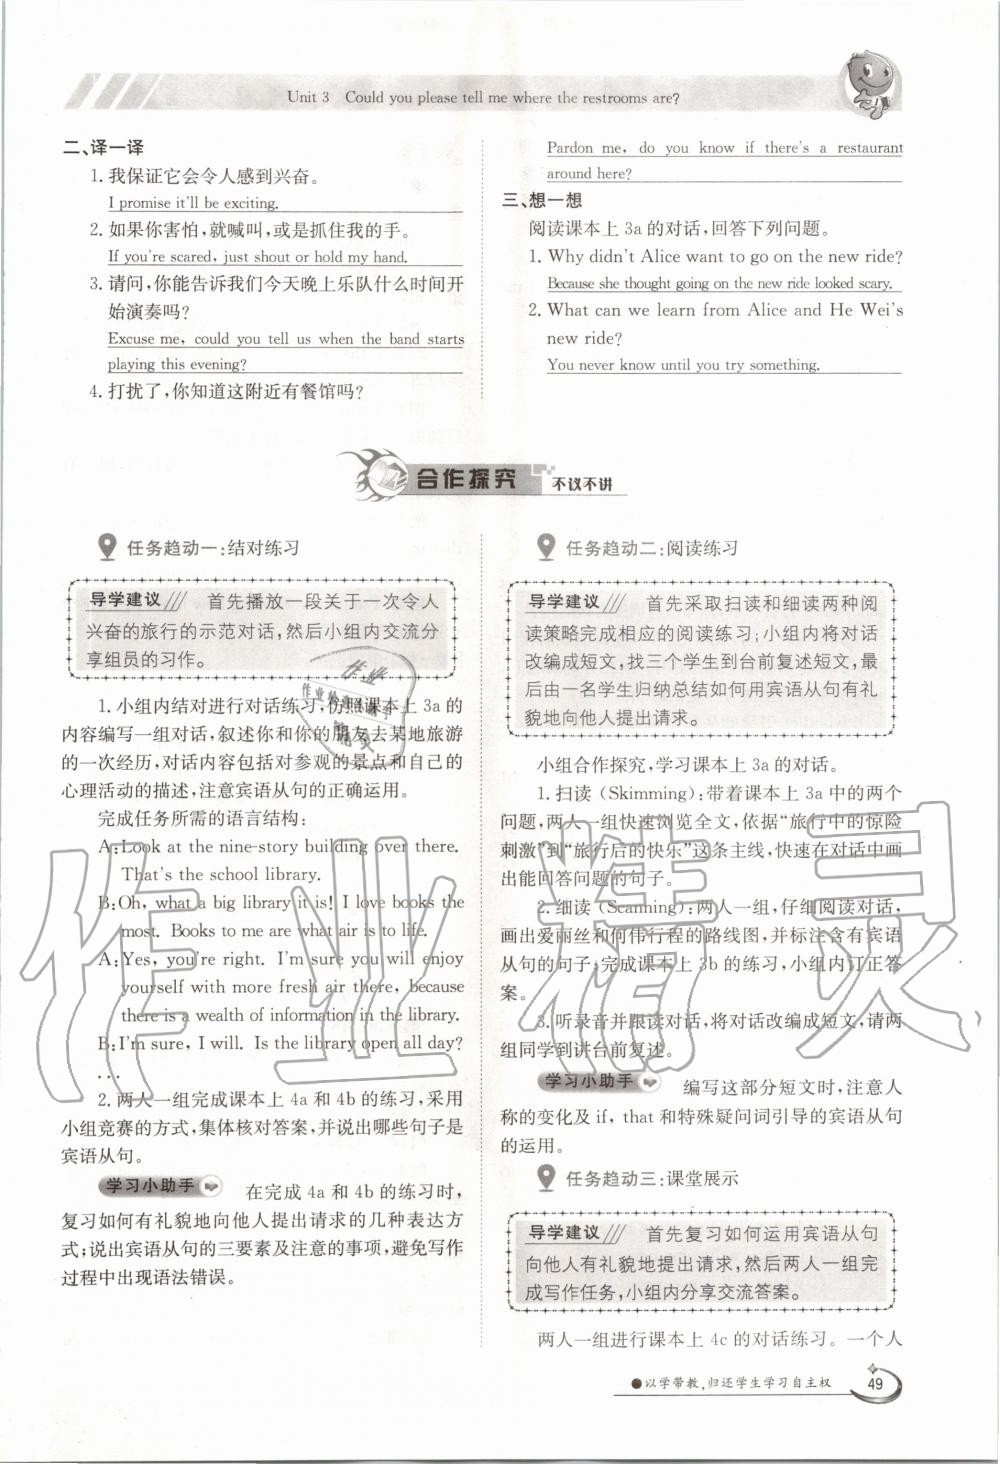 Unit 3 Could you please tell me where the restrooms are?
二、译一译
1. 我保证它会令人感到兴奋。
I promise it'll be exciting.
2. 如果你害怕,就喊叫,或是抓住我的手。
If you're scared, just shout or hold my hand.
3. 请问,你能告诉我们今天晚上乐队什么时间开
始演奏吗?
Excuse me, could you tell us when the band starts
playing this evening?
4. 打扰了,你知道这附近有餐馆吗?
Pardon me, do you know if there's a restaurant
around here?
三、想一想
阅读课本上 3a 的对话,回答下列问题。
1. Why didn't Alice want to go on the new ride?
Because she thought going on the new ride looked scary.
2. What can we learn from Alice and He Wei's
new ride?
You never know until you try something.
合作探究 不议不讲
任务趋动一:结对练习
导学建议 首先播放一段关于一次令人
兴奋的旅行的示范对话,然后小组内交流分
享组员的习作。
1. 小组内结对进行对话练习,仿照课本上 3a 的
内容编写一组对话,叙述你和你的朋友去某地旅游
的一次经历,对话内容包括对参观的景点和自己的
心理活动的描述,注意宾语从句的正确运用。
完成任务所需的语言结构:
A: Look at the nine-story building over there.
That's the school library.
B: Oh, what a big library it is! I love books the
most. Books to me are what air is to life.
A: Yes, you're right. I'm sure you will enjoy
yourself with more fresh air there, because
there is a wealth of information in the library.
B: I'm sure, I will. Is the library open all day?
...
2. 两人一组完成课本上 4a 和 4b 的练习,采用
小组竞赛的方式,集体核对答案,并说出哪些句子是
宾语从句。
学习小助手 在完成 4a 和 4b 的练习时,
复习如何有礼貌地向他人提出请求的几种表达方
式;说出宾语从句的三要素及注意的事项,避免写作
过程中出现语法错误。
任务趋动二:阅读练习
导学建议 首先采取扫读和细读两种阅
读策略完成相应的阅读练习;小组内将对话
改编成短文,找三个学生到台前复述短文,最
后由一名学生归纳总结如何用宾语从句有礼
貌地向他人提出请求。
小组合作探究,学习课本上 3a 的对话。
1. 扫读(Skimming):带着课本上 3a 中的两个
问题,两人一组快速浏览全文,依据“旅行中的惊险
刺激”到“旅行后的快乐”这条主线,快速在对话中画
出能回答问题的句子。
2. 细读(Scanning):两人一组,仔细阅读对话,
画出爱丽丝和何伟行程的路线图,并标注含有宾语
从句的句子;完成课本上 3b 的练习,小组内订正答
案。
3. 听录音并跟读对话,将对话改编成短文,请两
组同学到讲台前复述。
学习小助手 编写这部分短文时,注意人
称的变化及 if, that 和特殊疑问词引导的宾语从句
的运用。
任务趋动三:课堂展示
导学建议 首先复习如何运用宾语从句
向他人有礼貌地提出请求,然后两人一组完
成写作任务,小组内分享交流答案。
两人一组进行课本上 4c 的对话练习。一个人
●以学带教,归还学生学习自主权
49
作业精灵